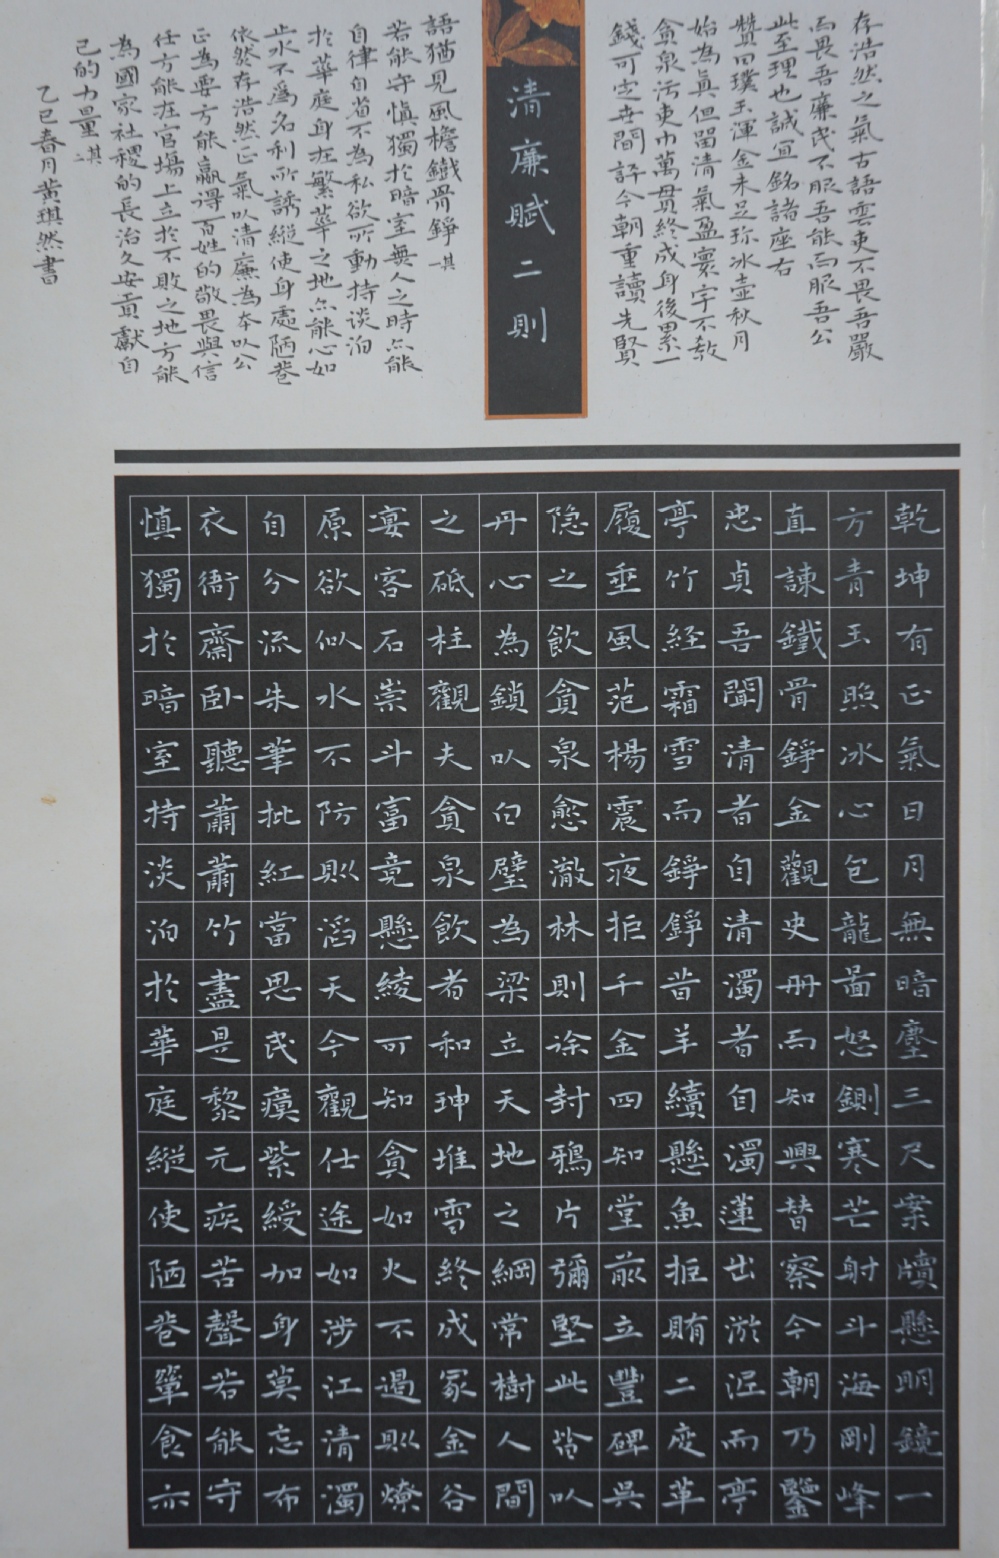 清廉賦二則
乾坤有正氣日月無暗塵三尺案牘懸明鏡一
方青玉照冰心包龍圖怒鍘寒芒射斗海剛峰
直諫鐵骨錚金觀史冊而知興替察今朝乃鑒
忠貞吾聞清者自清濁者自濁蓮出淤泥而亭
亭竹經霜雪而錚錚昔羊續懸魚拒賄二度革
履垂風范楊震夜拒千金四知堂前立豐碑吳
隐之飲貪泉愈澈林則徐封鴉片彌堅此皆以
丹心為鎖以白璧為梁立天地之綱常樹人間
之砥柱觀夫貪泉飲者和珅堆雪終成冢金谷
宴客石崇斗富竟懸綾可知貪如火不遏則燎
原欲似水不防則滔天今觀仕途如涉江清濁
自分流朱筆批紅當思民瘼紫綬加身莫忘布
衣衙齋卧聽蕭蕭竹盡是黎元疾苦聲若能守
慎獨於暗室持淡泊於華庭縱使陋巷簞食亦
存浩然之氣古語雲吏不畏吾嚴
而畏吾廉民不服吾能而服吾公
此至理也誠宜銘諸座右
贊曰璞玉渾金未足珍冰壺秋月
始為真但留清氣盈寰宇不教
貪泉污吏巾萬貫終成身後累一
錢可定世間評今朝重讀先賢
語猶見風檐鐵骨錚 其一
若能守慎獨於暗室無人之時亦能
自律自省不為私欲所動持淡泊
於華庭身在繁華之地亦能心如
止水不為名利所誘縱使身處陋巷
依然存浩然正氣以清廉為本以公
正為要方能贏得百姓的敬畏與信
任方能在官場上立於不敗之地方能
為國家社稷的長治久安貢獻自
己的力量 其二
乙巳春月黃琪然書